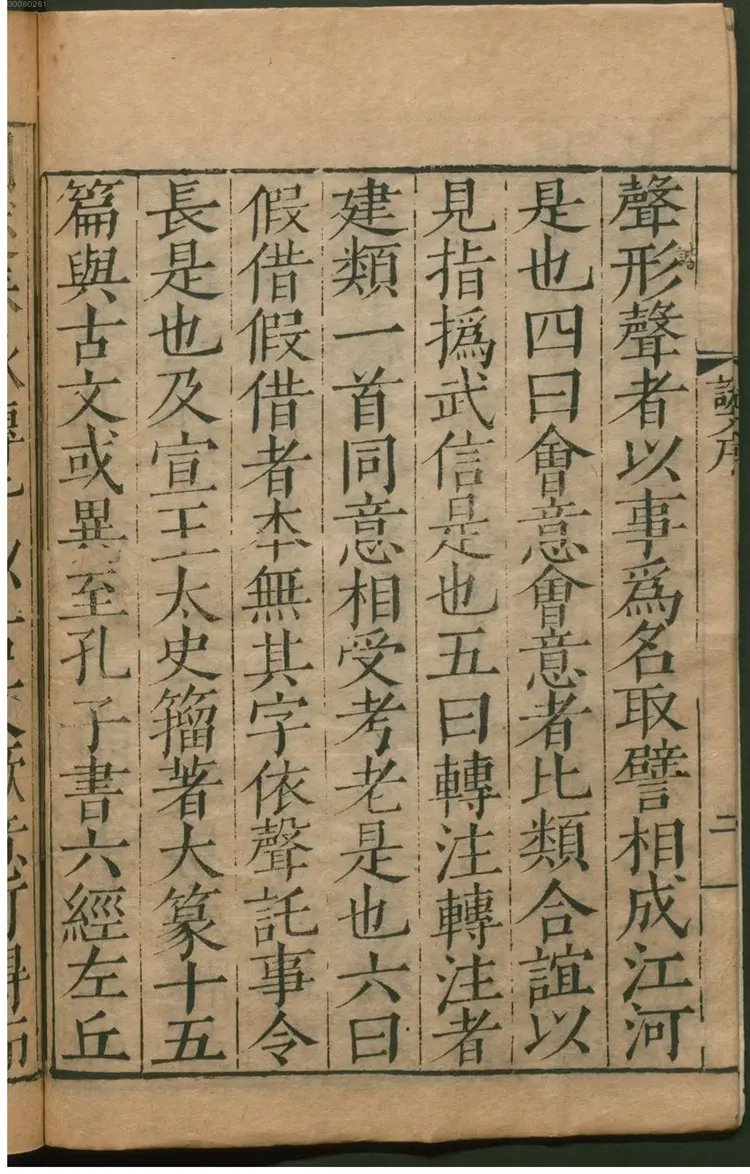 聲形聲者以事爲名取譬相成江河
是也四曰會意會意者比類合誼以
見指撝武信是也五曰轉注轉注者
建類一首同意相受考老是也六曰
假借假借者本無其字依聲託事令
長是也及宣王太史籀著大篆十五
篇與古文或異至孔子書六經左丘
二
00060261